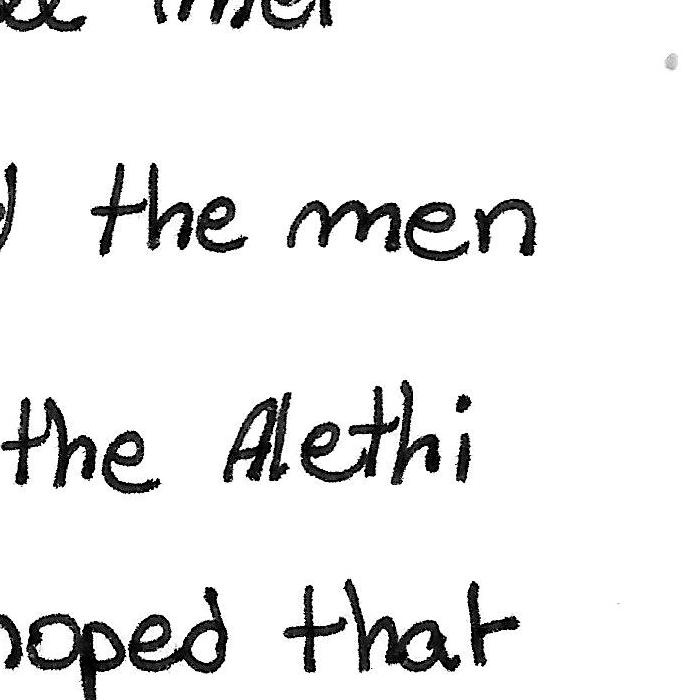 the men
the Alethi
hoped that